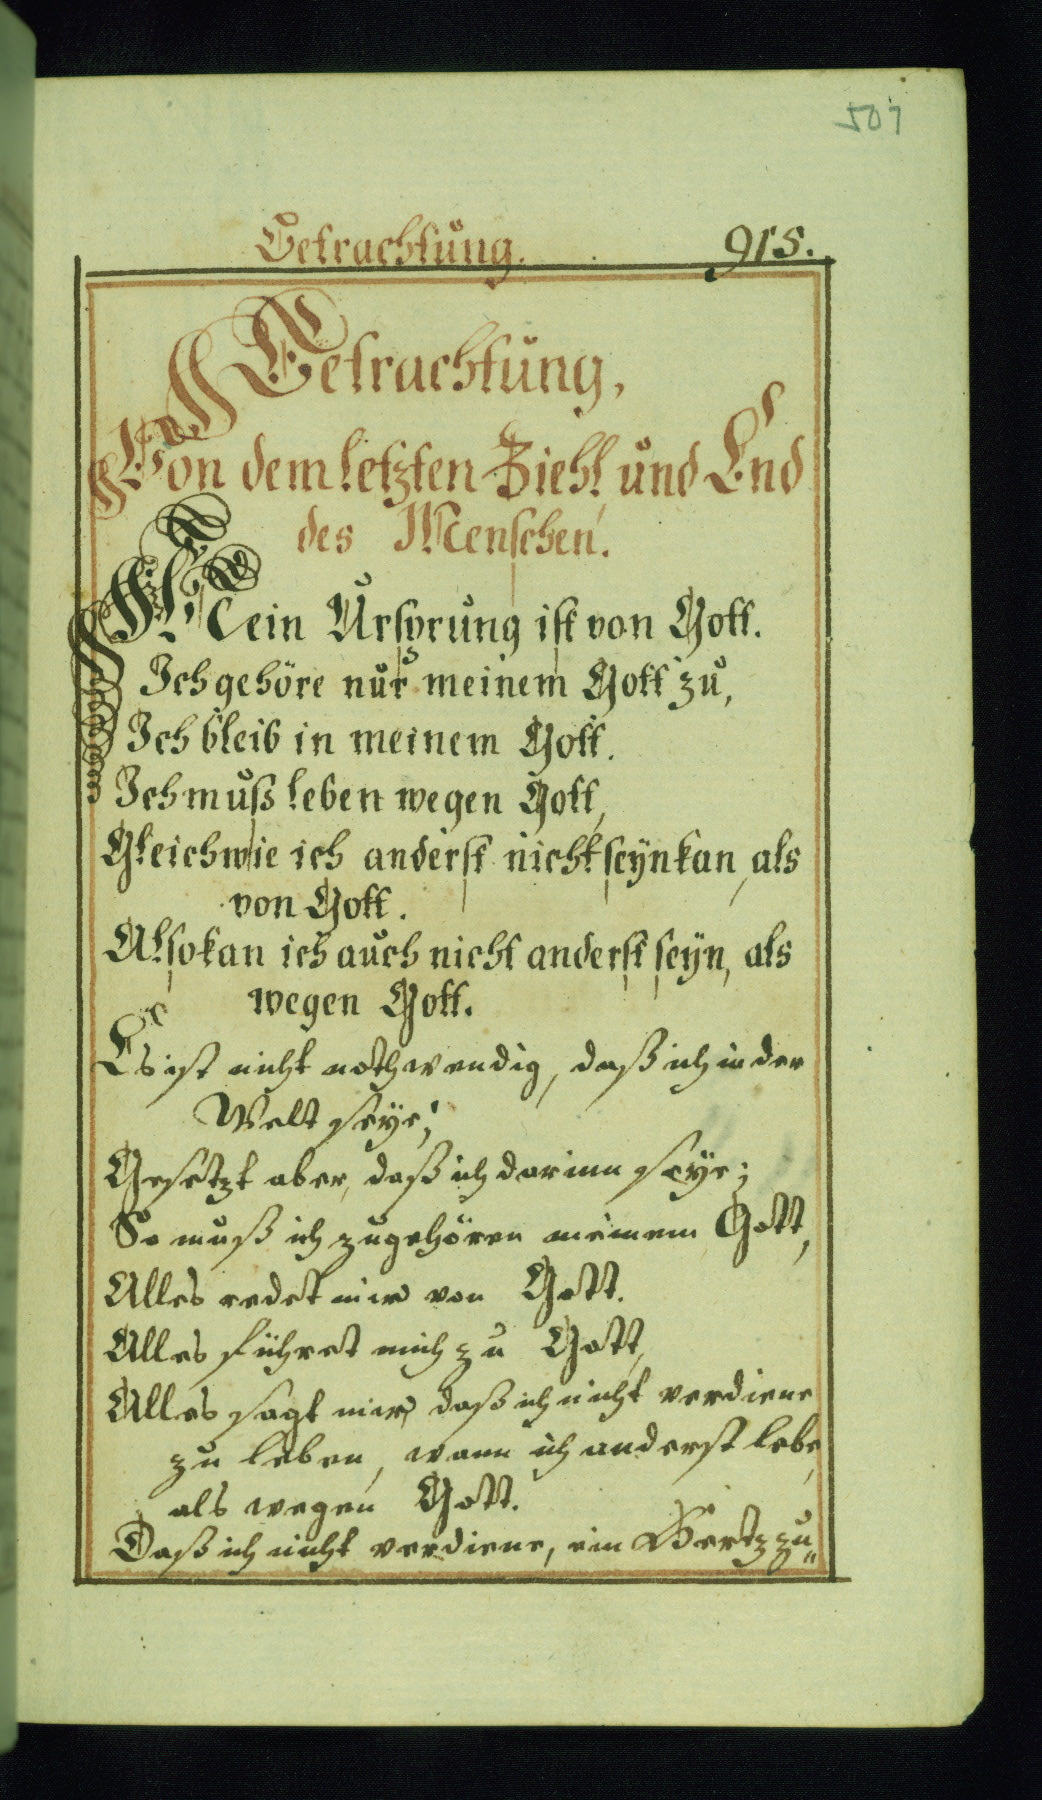 507
Betrachtung. 915.
Betrachtung,
Von dem letzten Ziehl und End
des Menschen.
Mein Ursprung ist von Gott.
Ich gehöre nur meinem Gott zu,
Ich bleib in meinem Gott.
Ich muß leben wegen Gott,
Gleichwie ich anderst nicht seyn kan, als
von Gott.
Also kan ich auch nicht anderst seyn, als
wegen Gott.
Es ist nicht nothwendig, daß ich in der
Welt seye;
Gesetzt aber, daß ich darinn seye;
So muß ich zugehören meinem Gott,
Alles redet mir von Gott.
Alles führet mich zu Gott,
Alles sagt mir, daß ich nicht verdiene
zu leben, wann ich anderst lebe,
als wegen Gott.
Daß ich nicht verdiene, ein Hertz zu„